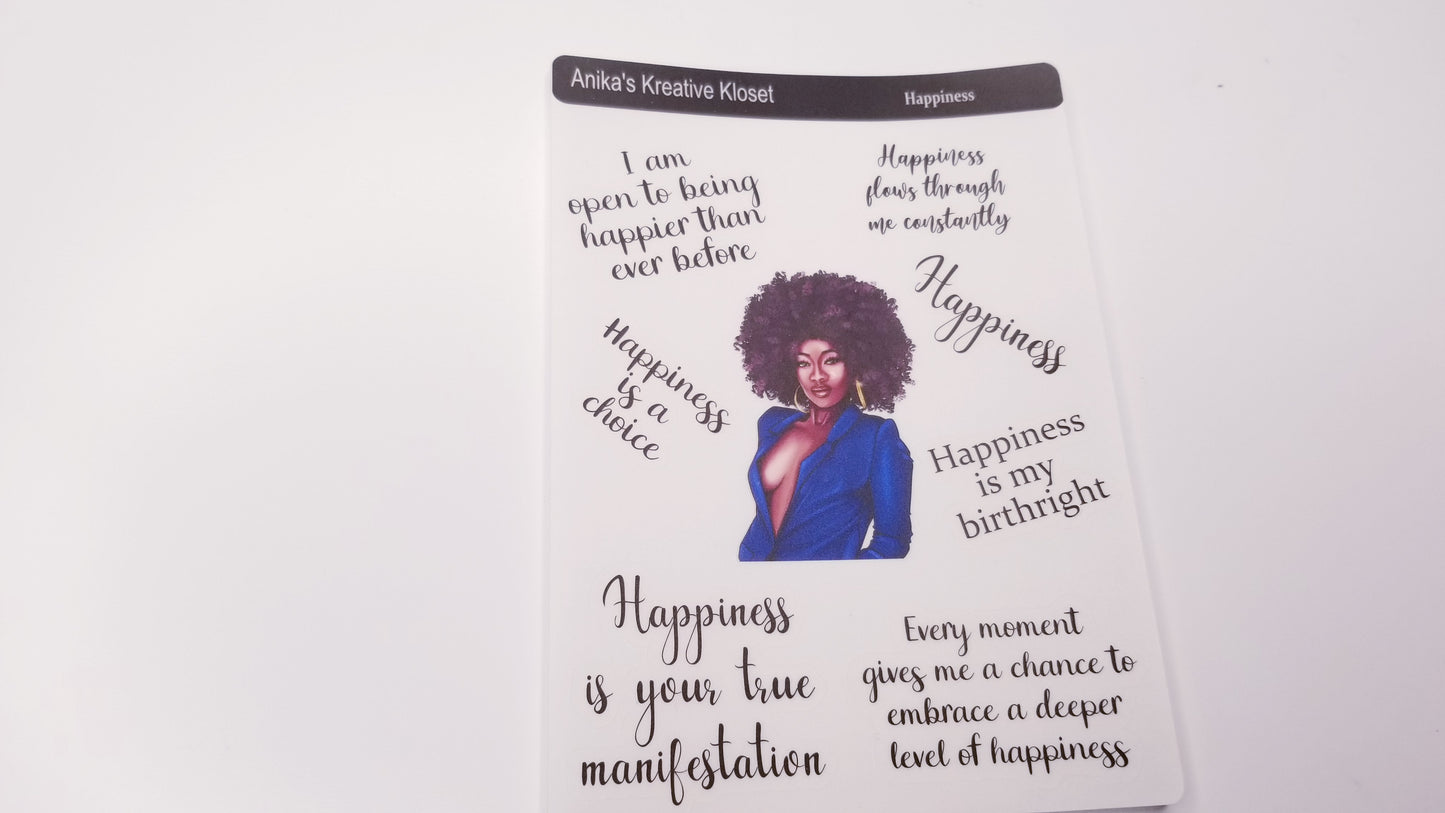 Anika's Kreative Kloset
Happiness
I am
open to being
happier than
ever before
Happiness
flows through
me constantly
Happiness
Happiness
is a
choice
Happiness
is my
birthright
Happiness
is your true
manifestation
Every moment
gives me a chance to
embrace a deeper
level of happiness